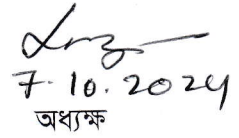 7.10.2024
অধ্যক্ষ